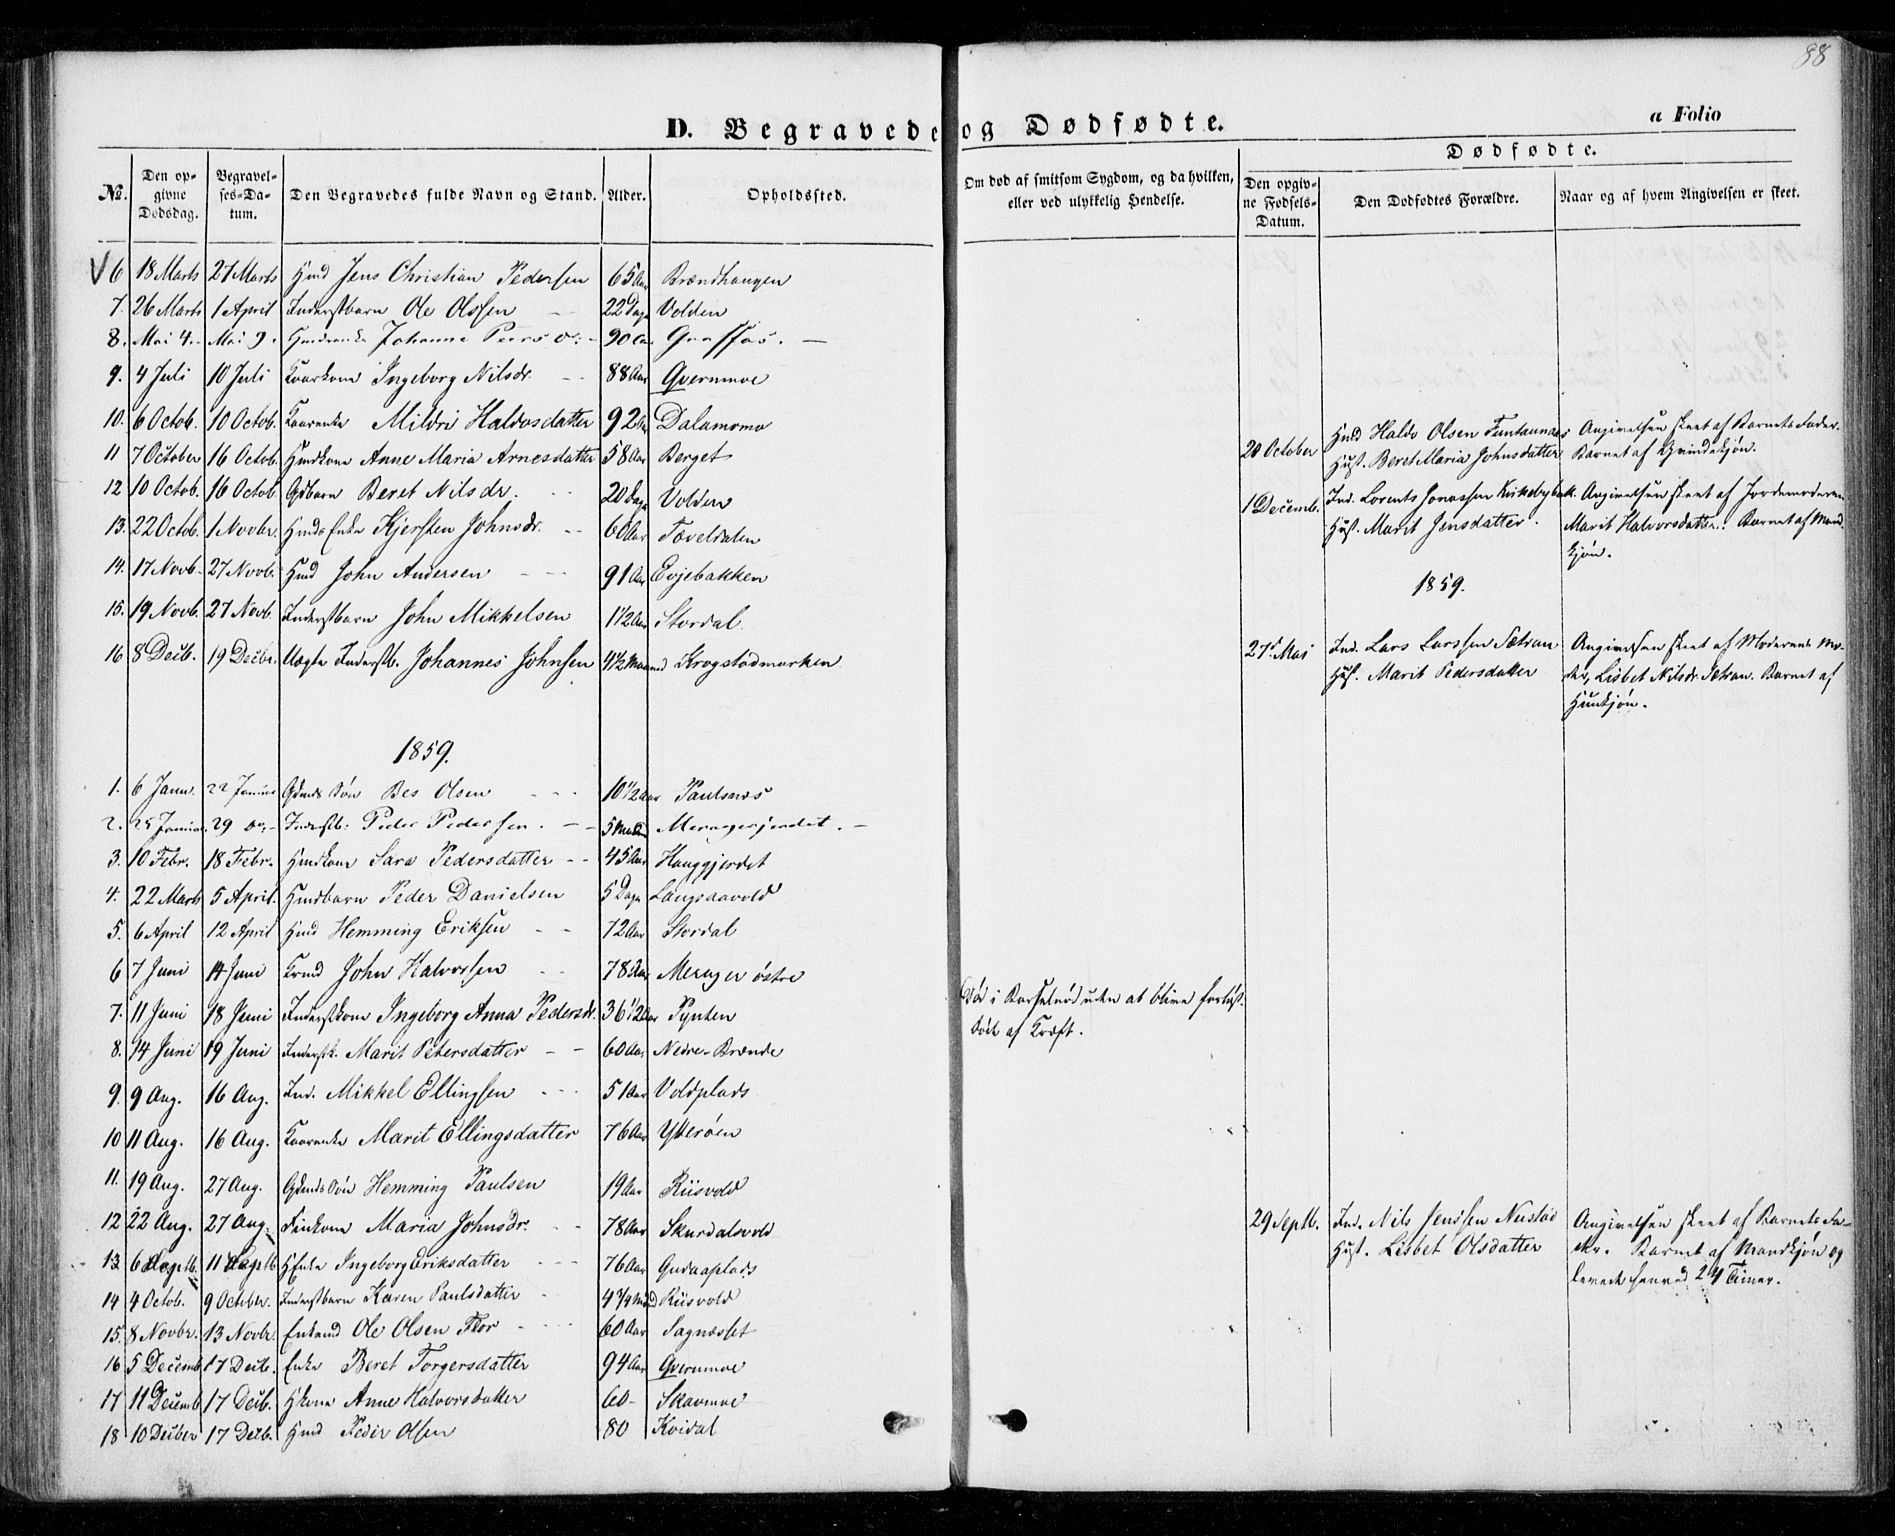 88
D. Begravede og Dødfødte.
a Folio
Dødfødte.
No.
Den opgivne Dødsdag.
Begravelses-Datum.
Den Begravedes fulde Navn og Stand.
Alder.
Opholdssted.
Om død af smitsom Sygdom, og da hvilken, eller ved ulykkelig Hendelse.
Den opgivne Fødsels-Datum.
Den Dødfødtes Forældre.
Naar og af hvem Angivelsen er skeet.
6 18 Marts 27 Marts Hmd Jens Christian Pedersen 65 Aar Brændhaugen
7. 26 Marts 1 April Inderstbarn Ole Olssen 22 Dage Volden
8. Mai 4. Mai 9. Johanna 90
9. 4 Juli 10 Juli Kaarkone Ingeborg Nilsdr. 88 Aar Qvernmoe
10. 6 Octob. 10 Octob. Kaarenke Mildri Haldosdatter 92 Aar Dalamomo
11 7 October 16 Octob. Hmdkone Anne Maria Arnesdatter 58 Aar Berget
12 10 Octob. 16 Octob. Gdbarn Beret Nilsdr. 20 Dage Volden
13. 22 Octob. 1 Novbr. Hmds Enke Kjersten Johnsdr. 60 Aar Tæveldalen
14. 17 Novb. 27 Novb. Hmd John Andersen 91 Aar Evjebakken
15. 19 Novb. 27 Novb. Inderstbarn John Mikkelsen 1 1/2 Aar Stordal
16 8 Decb. 19 Decbr. Uægte Inderstb. Johannes Johnsen 4 1/2 Maaned Krogstadmarken
1859.
1. 6 Janu. 22 Januar Gdmds Søn Bes Olsen 10 1/2 Aar Paulsnæs
2. 25 Januar 29 do. Inderstb: Peder Pedersen. 5 Meragerjordet.
3. 10 Febr. 18 Febr. Hmdkone Sara Pedersdatter 45 Aar Hauggjerdet
4. 22 Marts 5 April. Hmdbarn Peder Danielsen 5 Dage Langsaavold
5. 6 April 12 April Hmd Hemming Eriksen 72 Aar Stordal
6 7 Juni 14 Juni Krmd John Halvorsen 78 Aar Merager østre
7. 11 Juni 18 Juni Inderstkone Ingeborg Anna Pedersdr. 36 1/2 Aar Pynten Død i Barselnød uden at blive forløst.
8. 14 Juni 19 Juni Inderstk. Marit Petersdatter 60 Aar Nedre-Brænde død af Kræft.
9. 9 Aug. 16 Aug. Ind. Mikkel Ellingsen 51 Aar Voldplads
10 11 Aug. 16 Aug. Kaarenke Marit Ellingsdatter 76 Aar Ytterøen
11. 19 Aug. 27 Aug. Gdmds Søn Hemming Paulsen 19 Aar Riisvold
12 22 Aug. 27 Aug. Finkone Maria Johnsdr. 78 Aar Skurdalsvold
13 6 Septb. 11 Septb. HEnke Ingeborg Eriksdatter 76 Aar Gudaaplads
14 4 Octob. 9 October. Inderstbarn Karen Paulsdatter 4 3/4 Mnd Riisvold
15. 8 Novbr. 13 Novbr. Enkemd Ole Olsen Flor 60 Aar Sagnæsset
16 5 Decemb. 17 Decb. Enke Beret Torgersdatter 94 Aar Qvernmoe
17 11 Decemb. 17 Decb. Hkone Anne Halvorsdatter 60 Skavmoe
18 10 Decber 17 Decb. Hmd Peder Olsen 80 Kvidal
20 October Hmd Haldo Olsen Funtaunæs
Hust. Beret Maria Johnsdatter
Angivelsen skeet af Barnets Fader.
Barnet af Qvindekjøn.
1 Decemb. Ind. Lorents Jonassen Kirkebybak.
Hust. Marit Jensdatter.
Angivelsen skeet af Jordemoderen
Marit Halvorsdatter. Barnet af Mand
kjøn.
1859.
27 Mai Ind. Lars Larssen Sætran
Hust. Marit Pedersdatter
Angivelsen skeet af Moderens Mo-
der, Lisbet Nilsdr. Sætran. Barnet af
Hunkjøn.
29 Septb. Ind. Nils Jenssen Nustad
Hust. Lisbet Olsdatter
Angivelsen skeet af Barnets Fa-
der. Barnet af Mandkjøn og
levede henved 24 Timer.